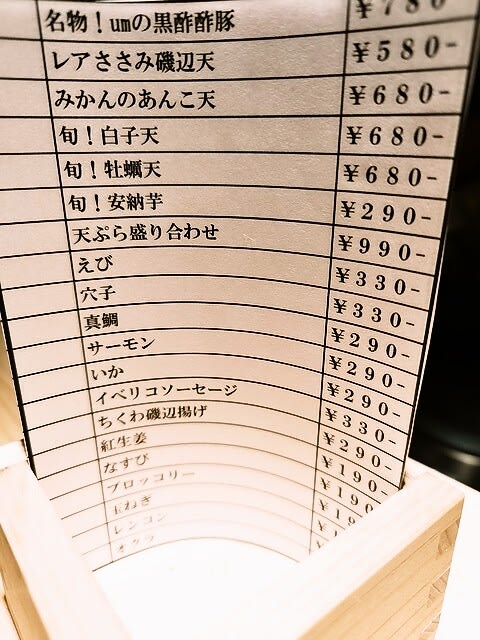 名物！umの黒酢酢豚 ¥780-
レアささみ磯辺天 ¥580-
みかんのあんこ天 ¥680-
旬！白子天 ¥680-
旬！牡蠣天 ¥680-
旬！安納芋 ¥290-
天ぷら盛り合わせ ¥990-
えび ¥330-
穴子 ¥330-
真鯛 ¥290-
サーモン ¥290-
いか ¥290-
イベリコソーセージ ¥330-
ちくわ磯辺揚げ ¥290-
紅生姜 ¥190-
なすび ¥190
ブロッコリー
玉ねぎ
レンコン
オクラ